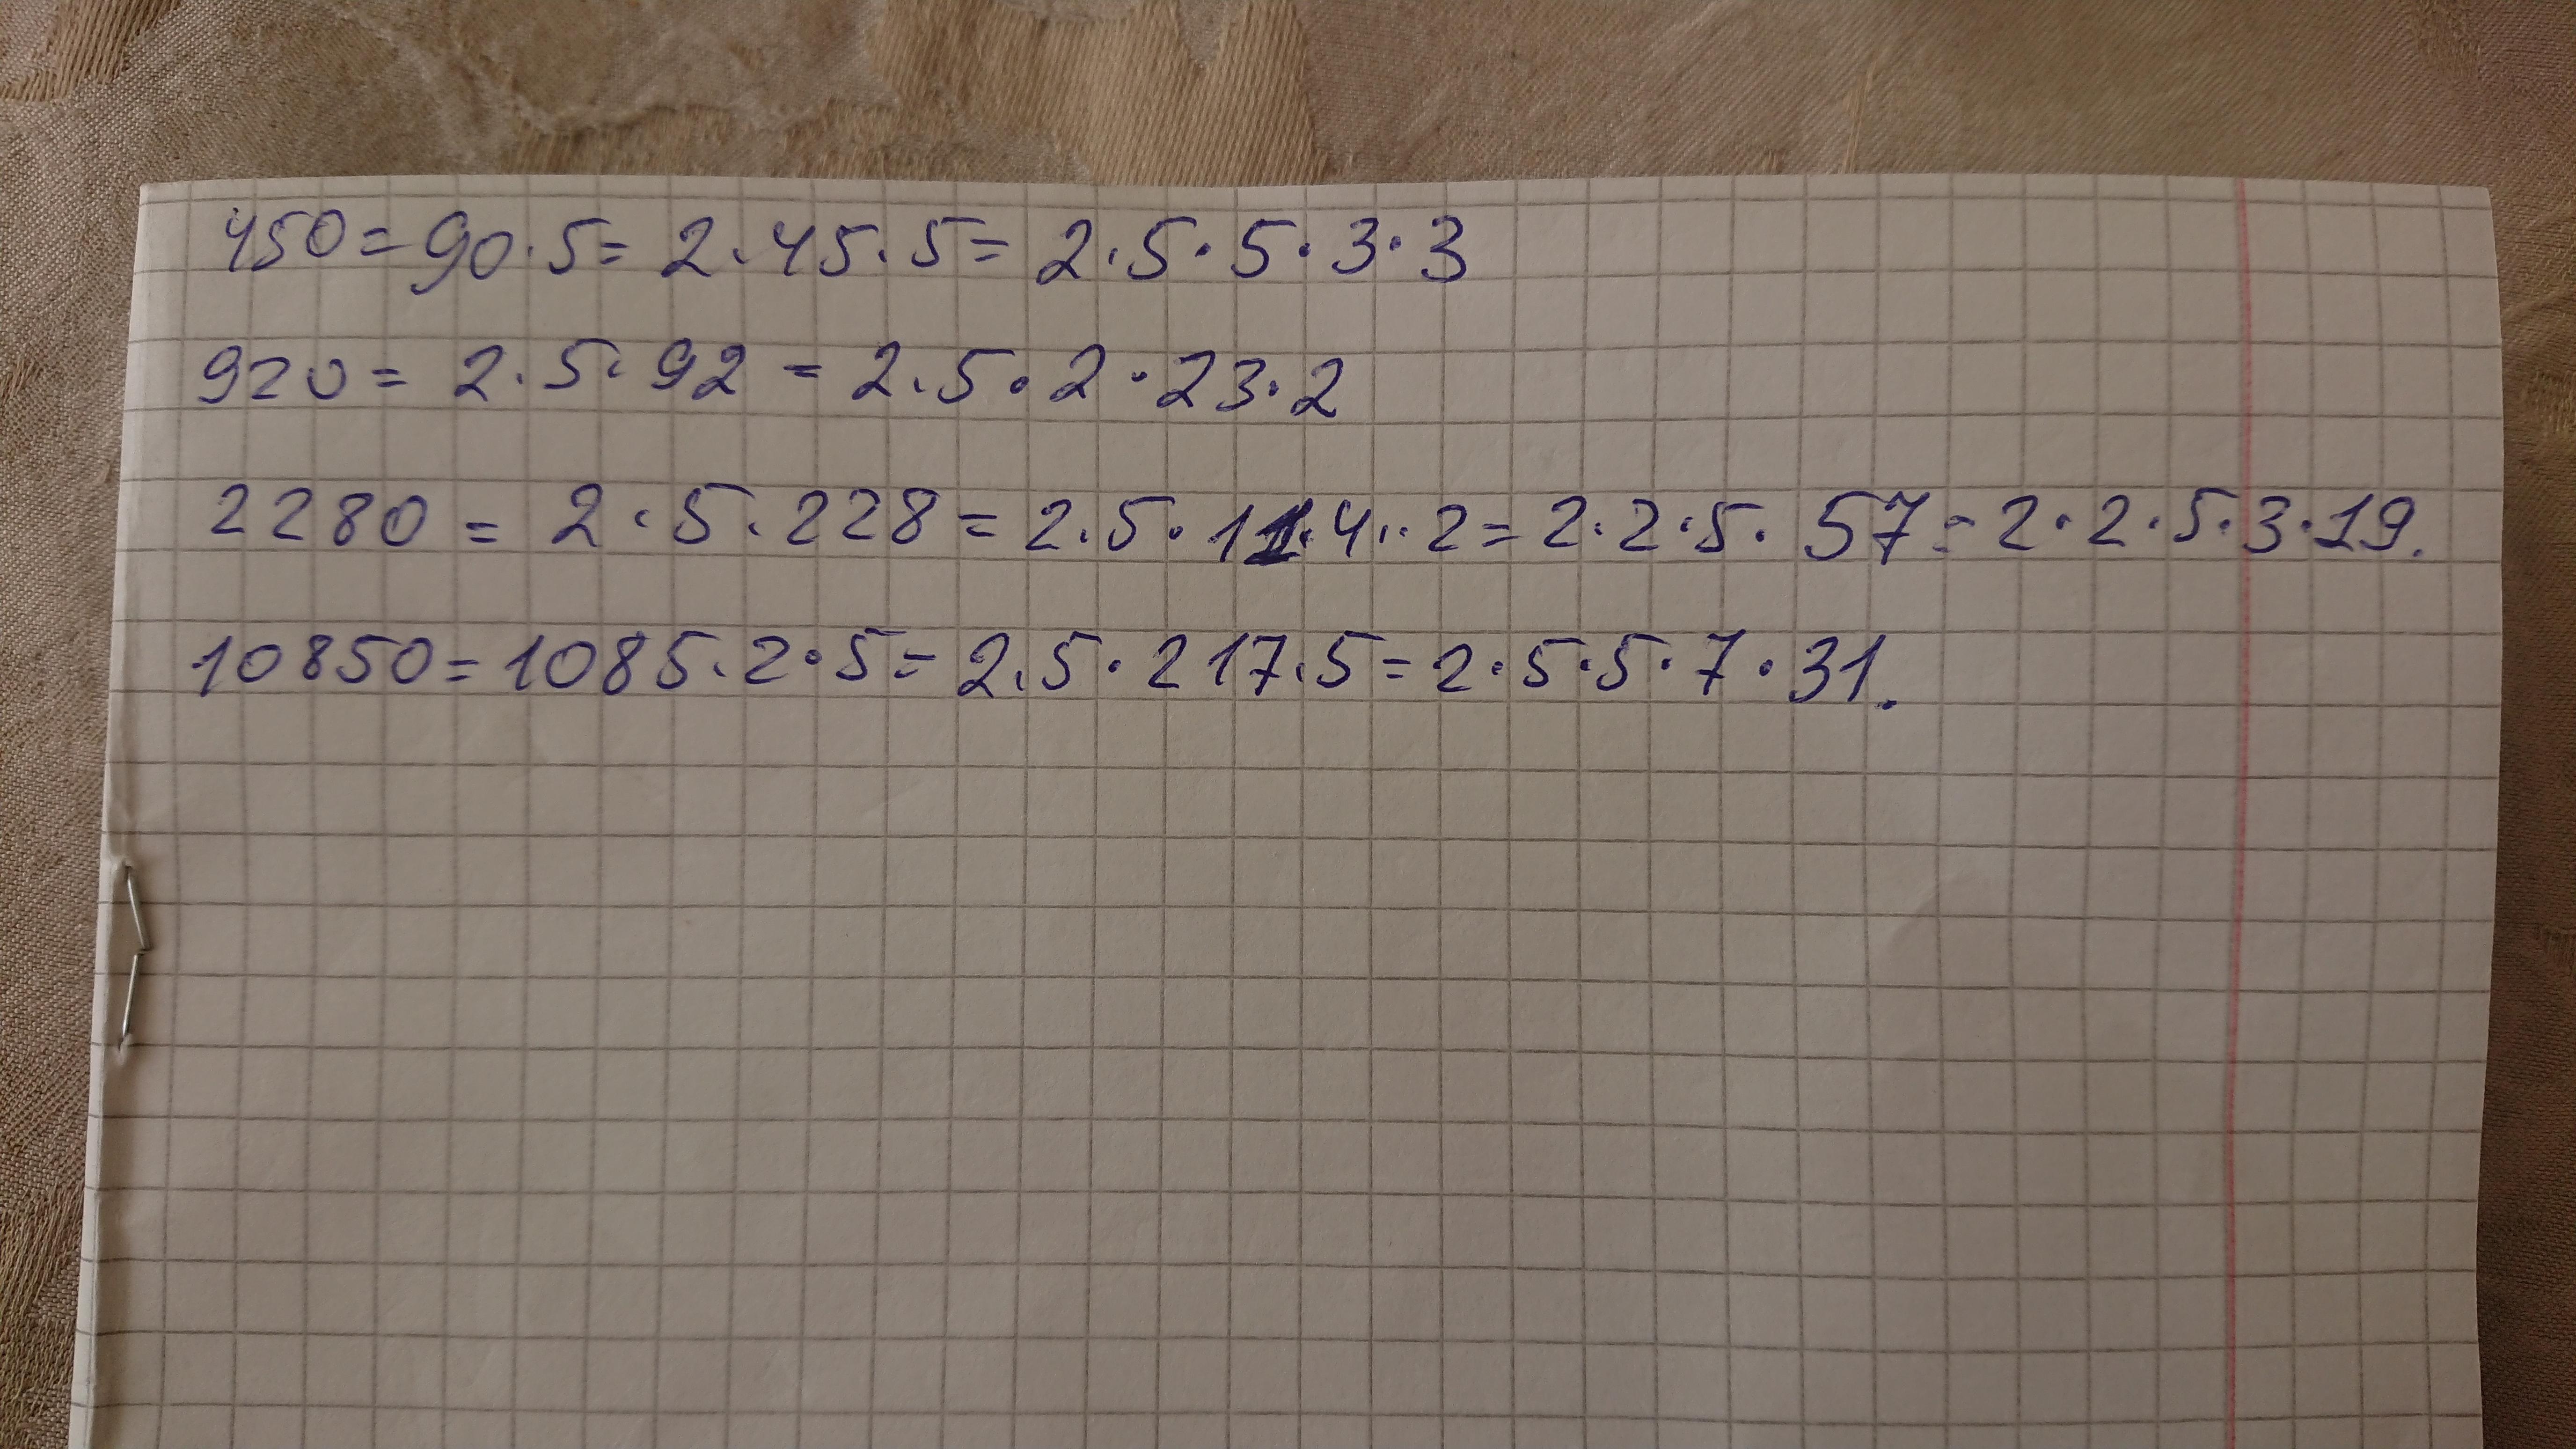 450=90·5=2·45·5=2·5·5·3·3
920=2·5·92=2·5·2·23·2
2280=2·5·228=2·5·11·4··2=2·2·5·57=2·2·5·3·19.
10850=1085·2·5=2·5·217·5=2·5·5·7·31.